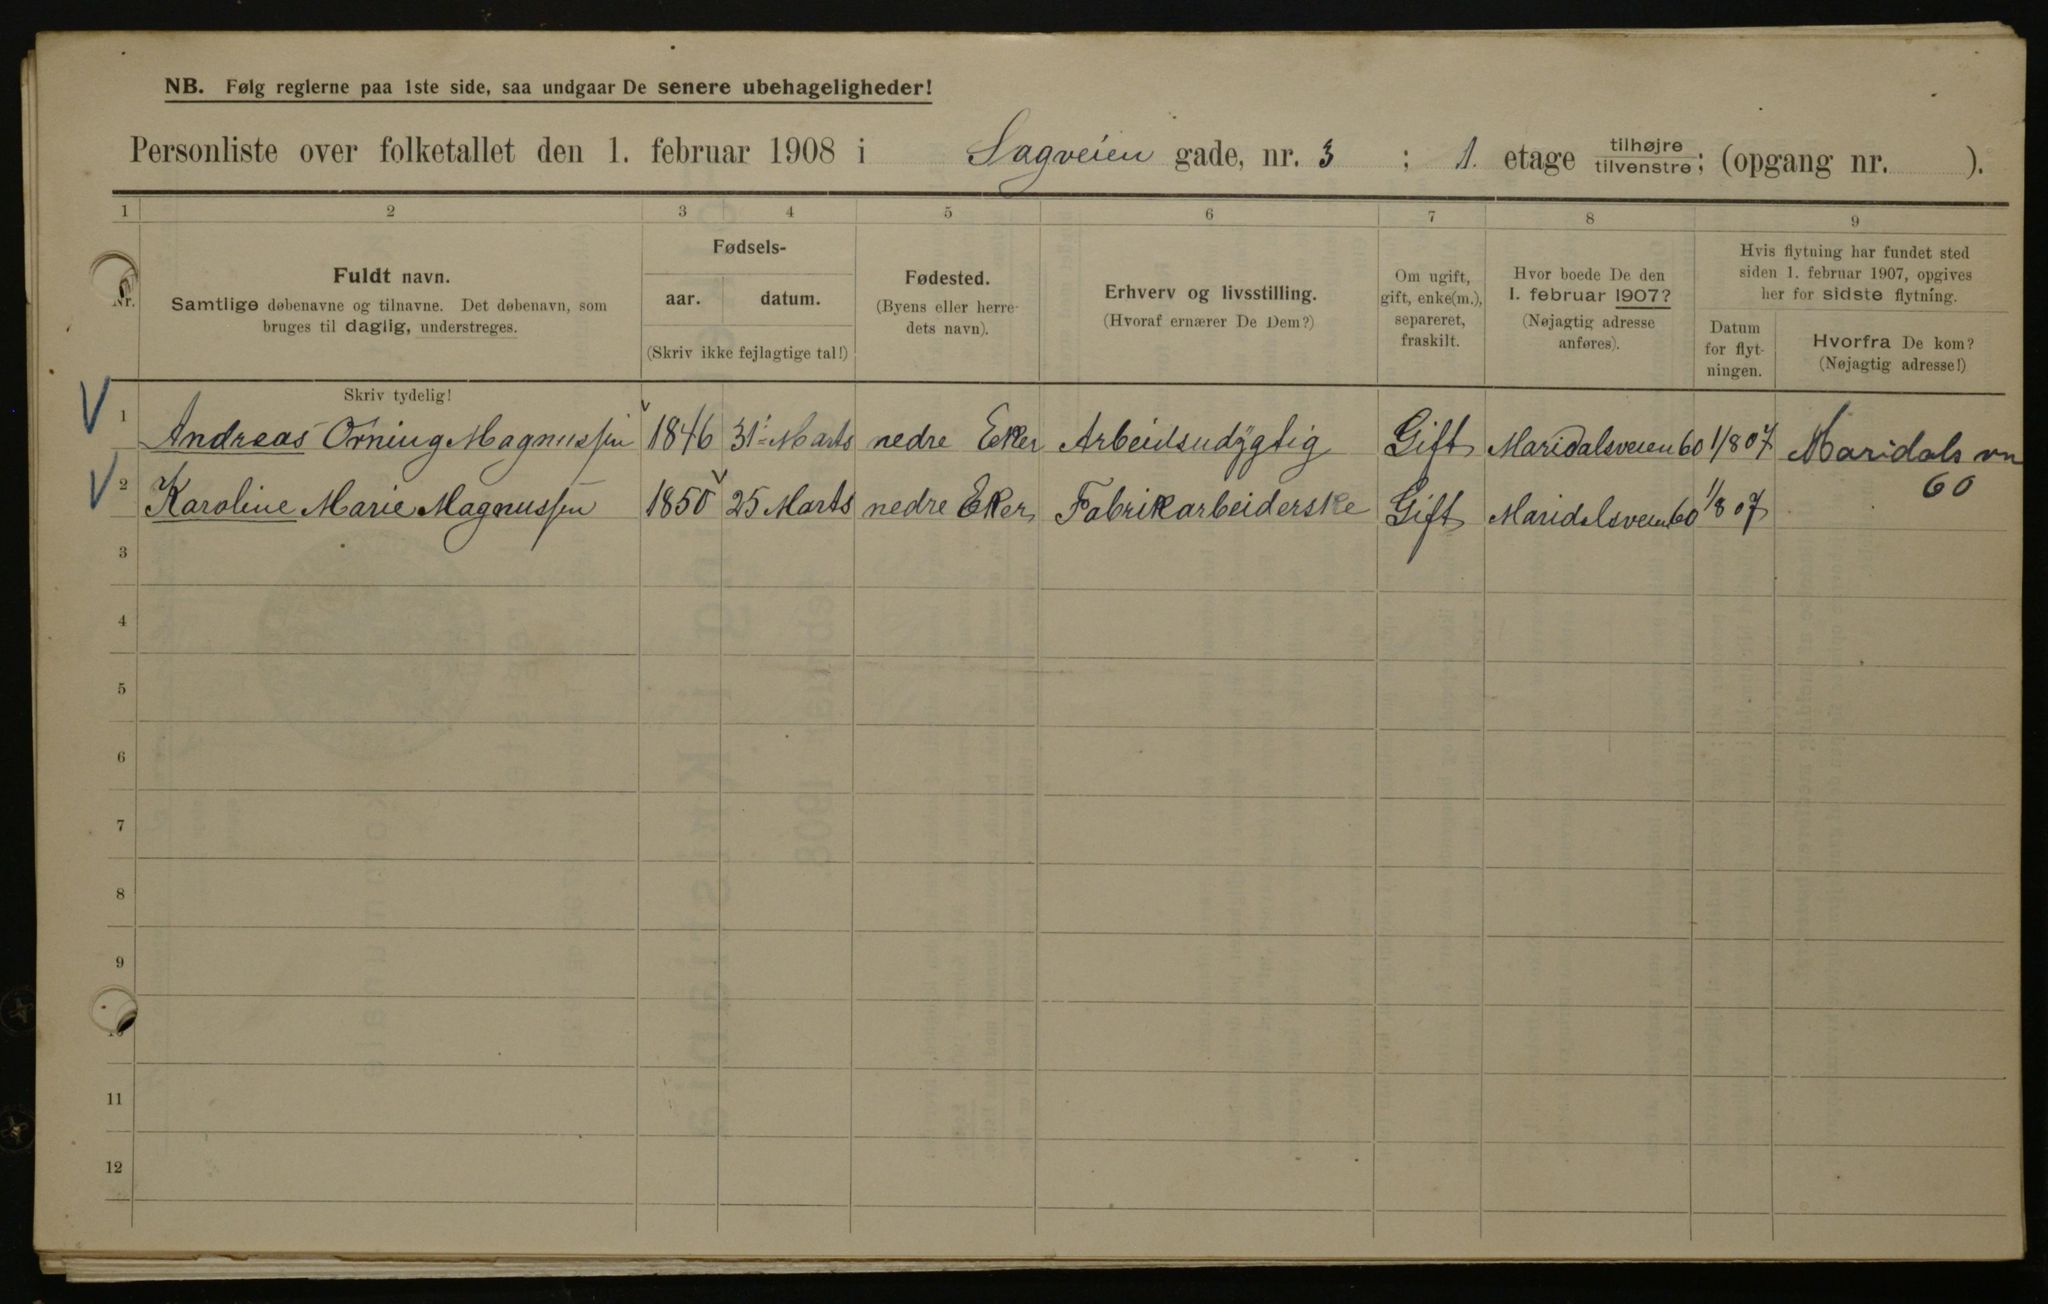 NB. Følg reglerne paa 1ste side, saa undgaar De senere ubehageligheder!
Personliste over folketallet den 1. februar 1908 i Sagveien gade, nr. 3 ; 1. etage tilhøjre/tilvenstre; (opgang nr. ).
1 2 3 4 5 6 7 8 9
Nr.
Fuldt navn.
Samtlige døbenavne og tilnavne. Det døbenavn, som
bruges til daglig, understreges.
Skriv tydelig!
Fødsels-
aar. datum.
(Skriv ikke fejlagtige tal!)
Fødested.
(Byens eller herre-
dets navn).
Erhverv og livsstilling.
(Hvoraf ernærer De Dem?)
Om ugift,
gift, enke(m.),
separeret,
fraskilt.
Hvor boede De den
1. februar 1907?
(Nøjagtig adresse
anføres).
Hvis flytning har fundet sted
siden 1. februar 1907, opgives
her for sidste flytning.
Datum
for flyt-
ningen.
Hvorfra De kom?
(Nøjagtig adresse!)
V 1 Andreas Orning Magnussen 1846 31' Marts nedre Eker Arbeidsudygtig Gift Maridalsveien 60 1/8 07 Maridals vn
60
V 2 Karoline Marie Magnussen 1850 25 Marts nedre Eker Fabrikarbeiderske Gift Maridalsveien 60 1/8 07
3
4
5
6
7
8
9
10
11
12